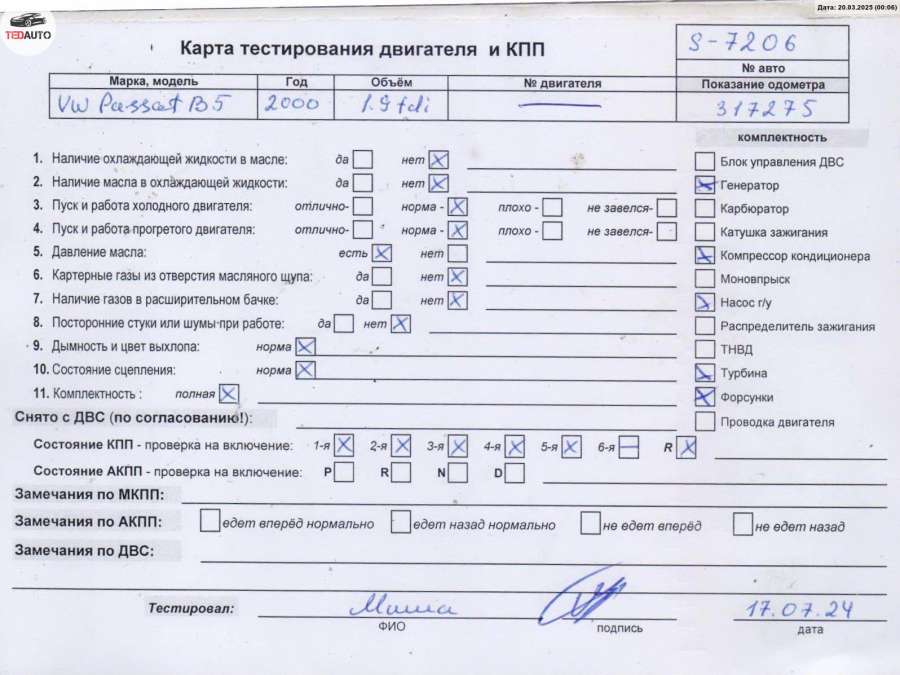 Дата: 20.03.2025 (00:06)
TEDAUTO
Карта тестирования двигателя и КПП
S-7206
№ авто
Марка, модель Год Объём № двигателя Показание одометра
VW Passat B5 2000 1.9 tdi — 317275
комплектность
1. Наличие охлаждающей жидкости в масле: да нет
Блок управления ДВС
2. Наличие масла в охлаждающей жидкости: да нет
Генератор
3. Пуск и работа холодного двигателя: отлично- норма - плохо - не завелся-
Карбюратор
4. Пуск и работа прогретого двигателя: отлично- норма - плохо - не завелся-
Катушка зажигания
5. Давление масла: есть нет
Компрессор кондиционера
6. Картерные газы из отверстия масляного щупа: да нет
Моновпрыск
7. Наличие газов в расширительном бачке: да нет
Насос г/у
8. Посторонние стуки или шумы при работе: да нет
Распределитель зажигания
9. Дымность и цвет выхлопа: норма
ТНВД
10. Состояние сцепления: норма
Турбина
11. Комплектность : полная
Форсунки
Снято с ДВС (по согласованию!):
Проводка двигателя
Состояние КПП - проверка на включение: 1-я 2-я 3-я 4-я 5-я 6-я R
Состояние АКПП - проверка на включение: P R N D
Замечания по МКПП:
Замечания по АКПП: едет вперёд нормально едет назад нормально не едет вперёд не едет назад
Замечания по ДВС:
Тестировал: Миша 17.07.24
ФИО подпись дата